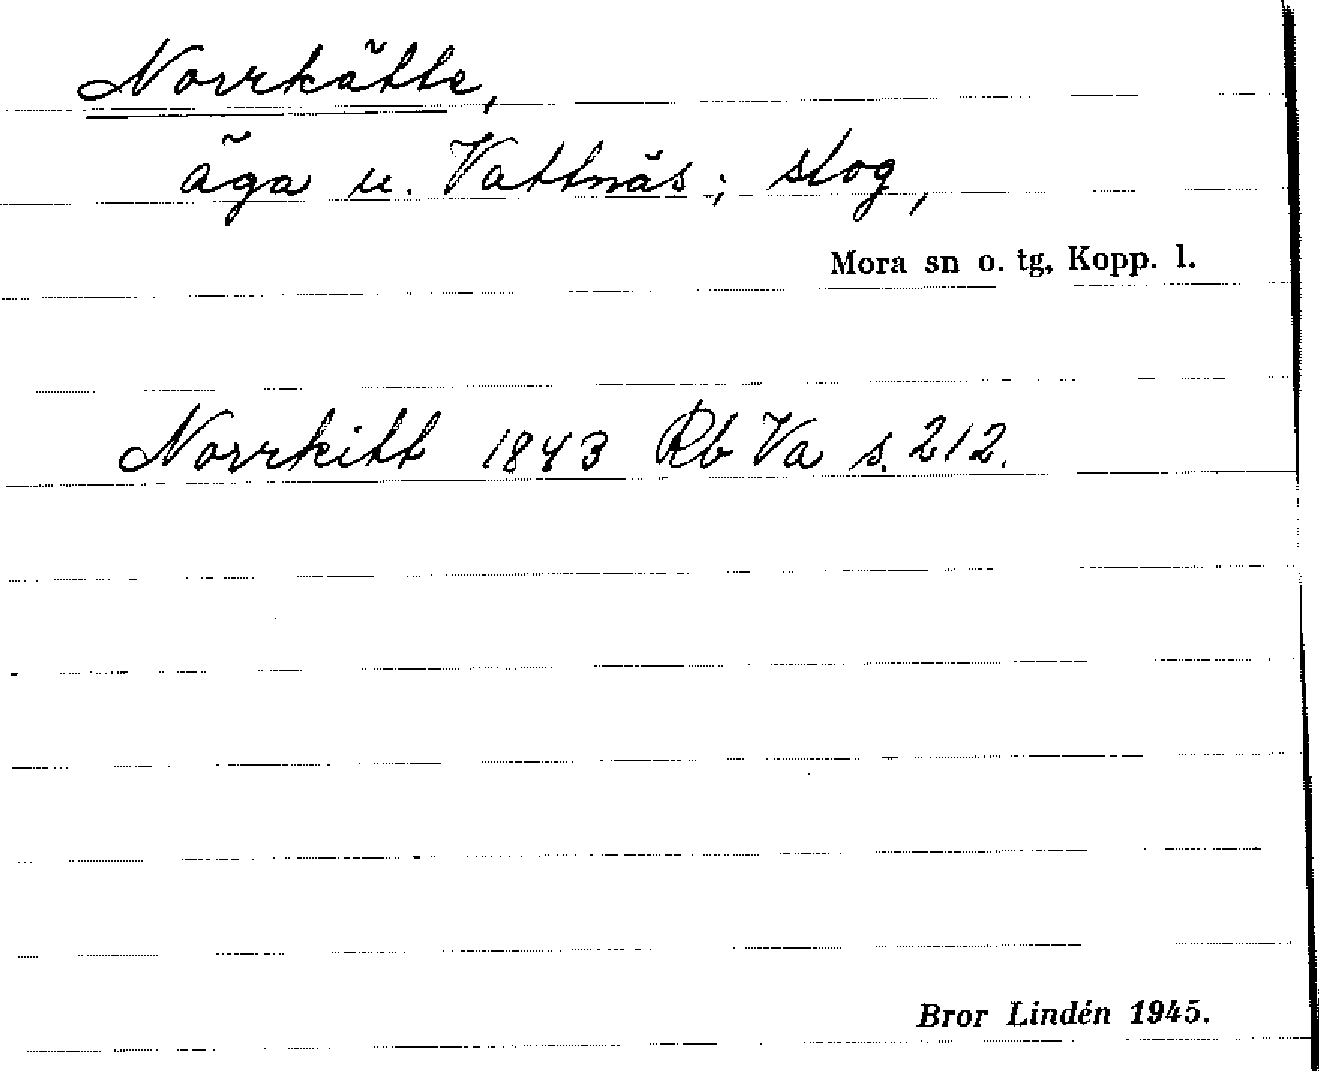 Norrkätte,
äga u. Vattnäs; skog,
Mora sn o. tg, Kopp. l.
Norrkitt 1843 Rb Va s. 212.
Bror Lindén 1945.